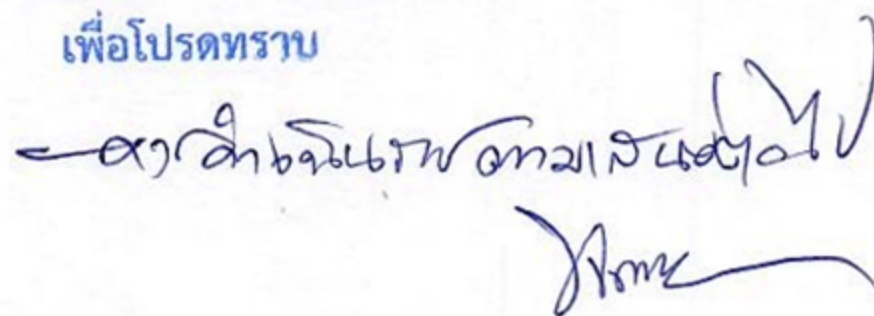 เพื่อโปรดทราบ
ดำเนินการตามเสนอต่อไป